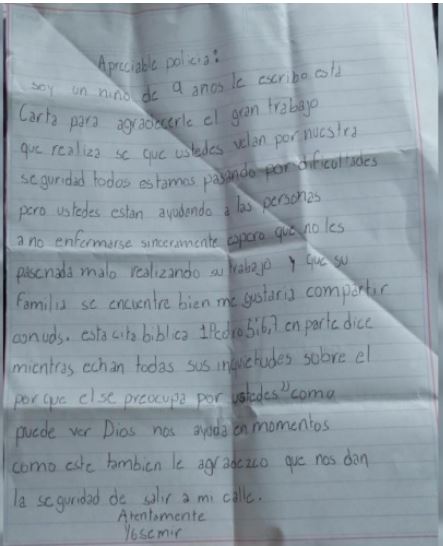 Apreciable policia:
soy un niño de 9 años le escribo esta
Carta para agradecerle el gran trabajo
que realiza se que ustedes velan por nuestra
seguridad todos estamos pasando por dificultades
pero ustedes estan ayudando a las personas
a no enfermarse sinceramente espero que no les
pase nada malo realizando su trabajo y que su
familia se encuentre bien me gustaria compartir
con uds. esta cita biblica 1 Pedro 5:6,7 en parte dice
mientras echan todas sus inquietudes sobre el
porque el se preocupa por ustedes" como
puede ver Dios nos ayuda en momentos
como este tambien le agradezco que nos dan
la seguridad de salir a mi calle.
Atentamente
Yosemir